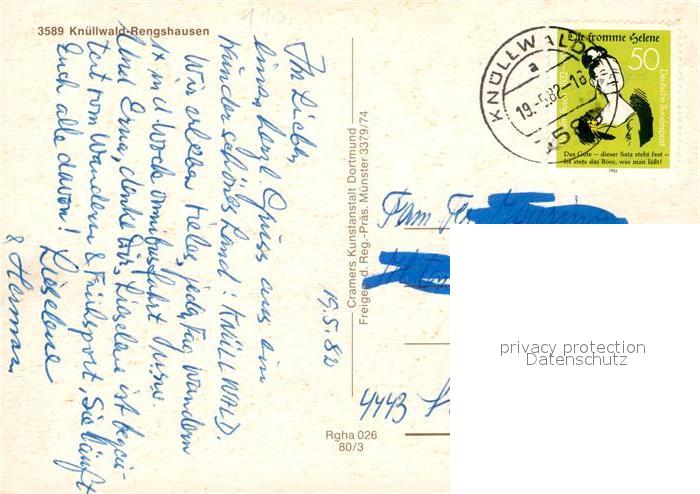 3589 Knüllwald-Rengshausen
110.
Ihr Lieben,
einen herzl. Gruss aus ein
wunderschönes Land! KNÜLLWALD.
Wir erleben vieles, jeden Tag wandern
1x in d. Woche Omnibusfahrt usw.
Uns Erna, denke Dir, Lieselene ist begeis-
tert vom Wandern & Frühsport, Sie läuft
Euch alle davon! Lieselene
& Herman
19.5.82
Cramers Kunstanstalt Dortmund
Freigegeb. d. Reg.-Präs. Münster 3379/74
Rgha 026
80/3
KNÜLLWALD
a
19.-5.82-16
3589
Die fromme Helene
50
Deutsche Bundespost
Das Gute – dieser Satz steht fest –
Ist stets das Böse, was man läßt!
1982
Fam
4443
privacy protection
Datenschutz